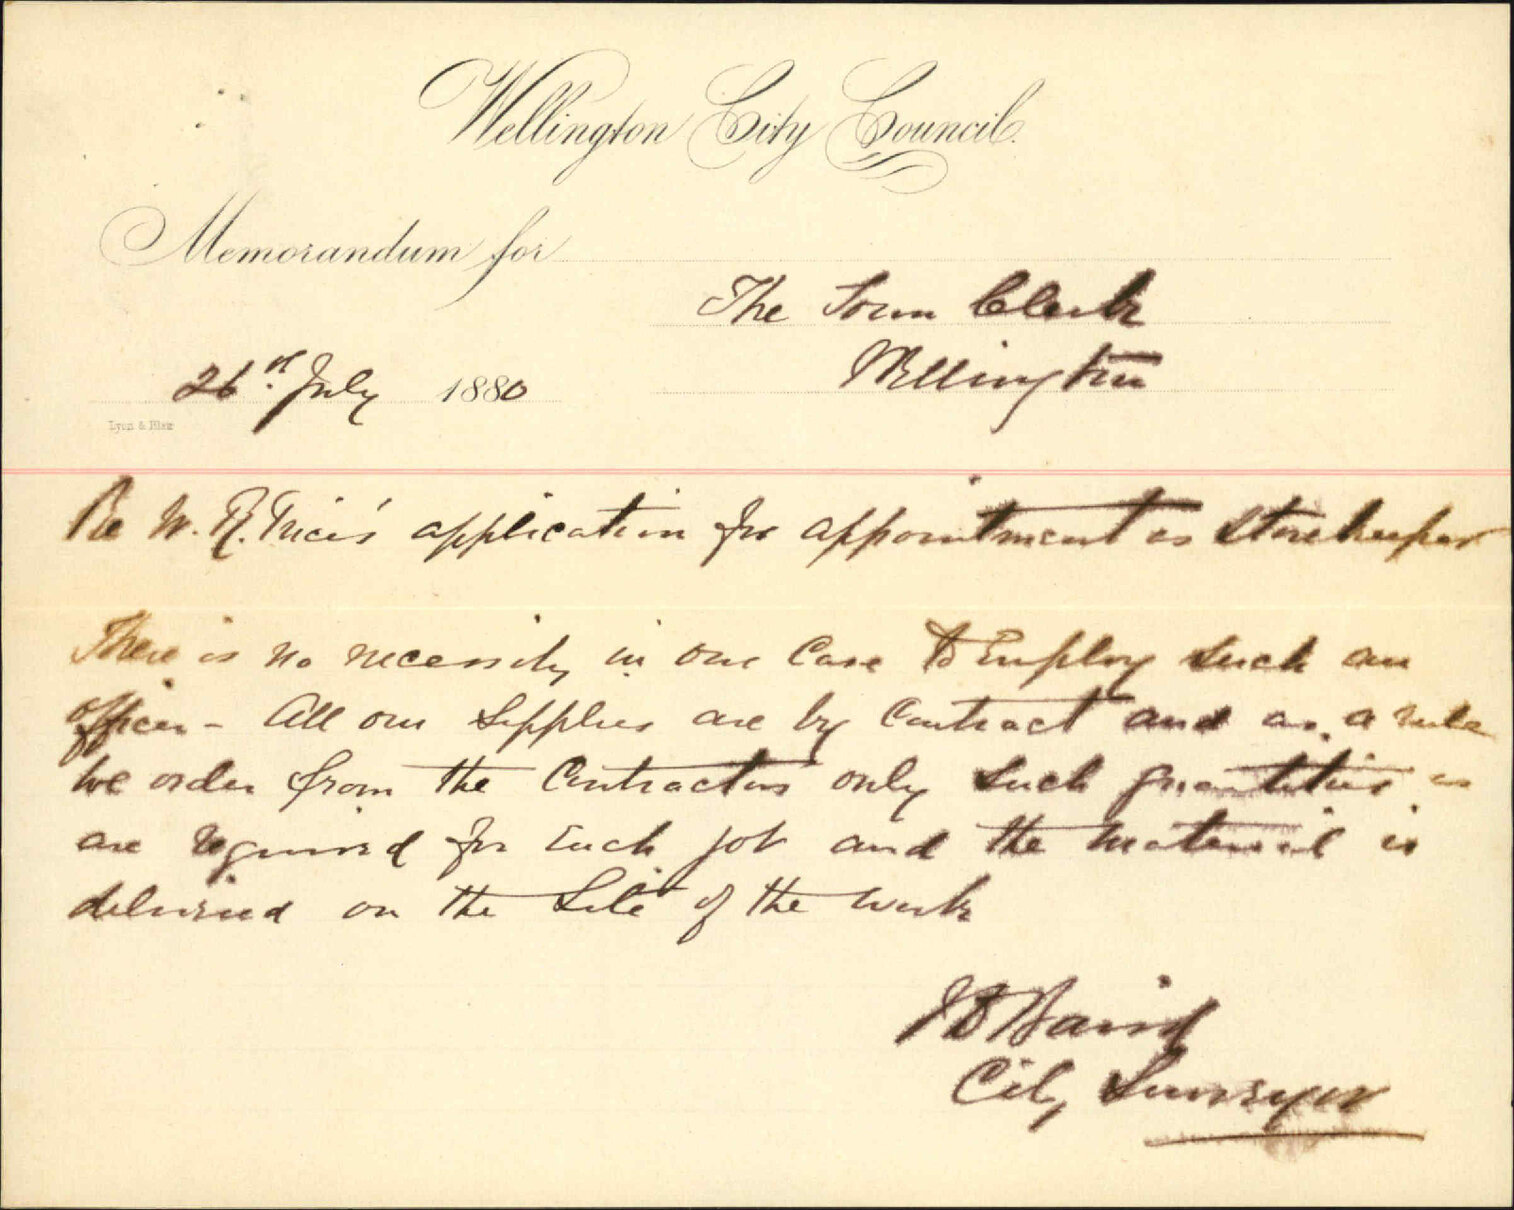 Wellington City Council.
Memorandum for
The Town Clerk
Wellington
26th July 1880
Lyon & Blair
Re W. R. Price's application for appointment as Storekeeper
There is no necessity in our Case to Employ such an
officer - All our Supplies are by Contract and as a rule
we order from the Contractors only such quantities as
are required for Each job and the material is
delivered on the Site of the work
J D Baird
City Surveyor